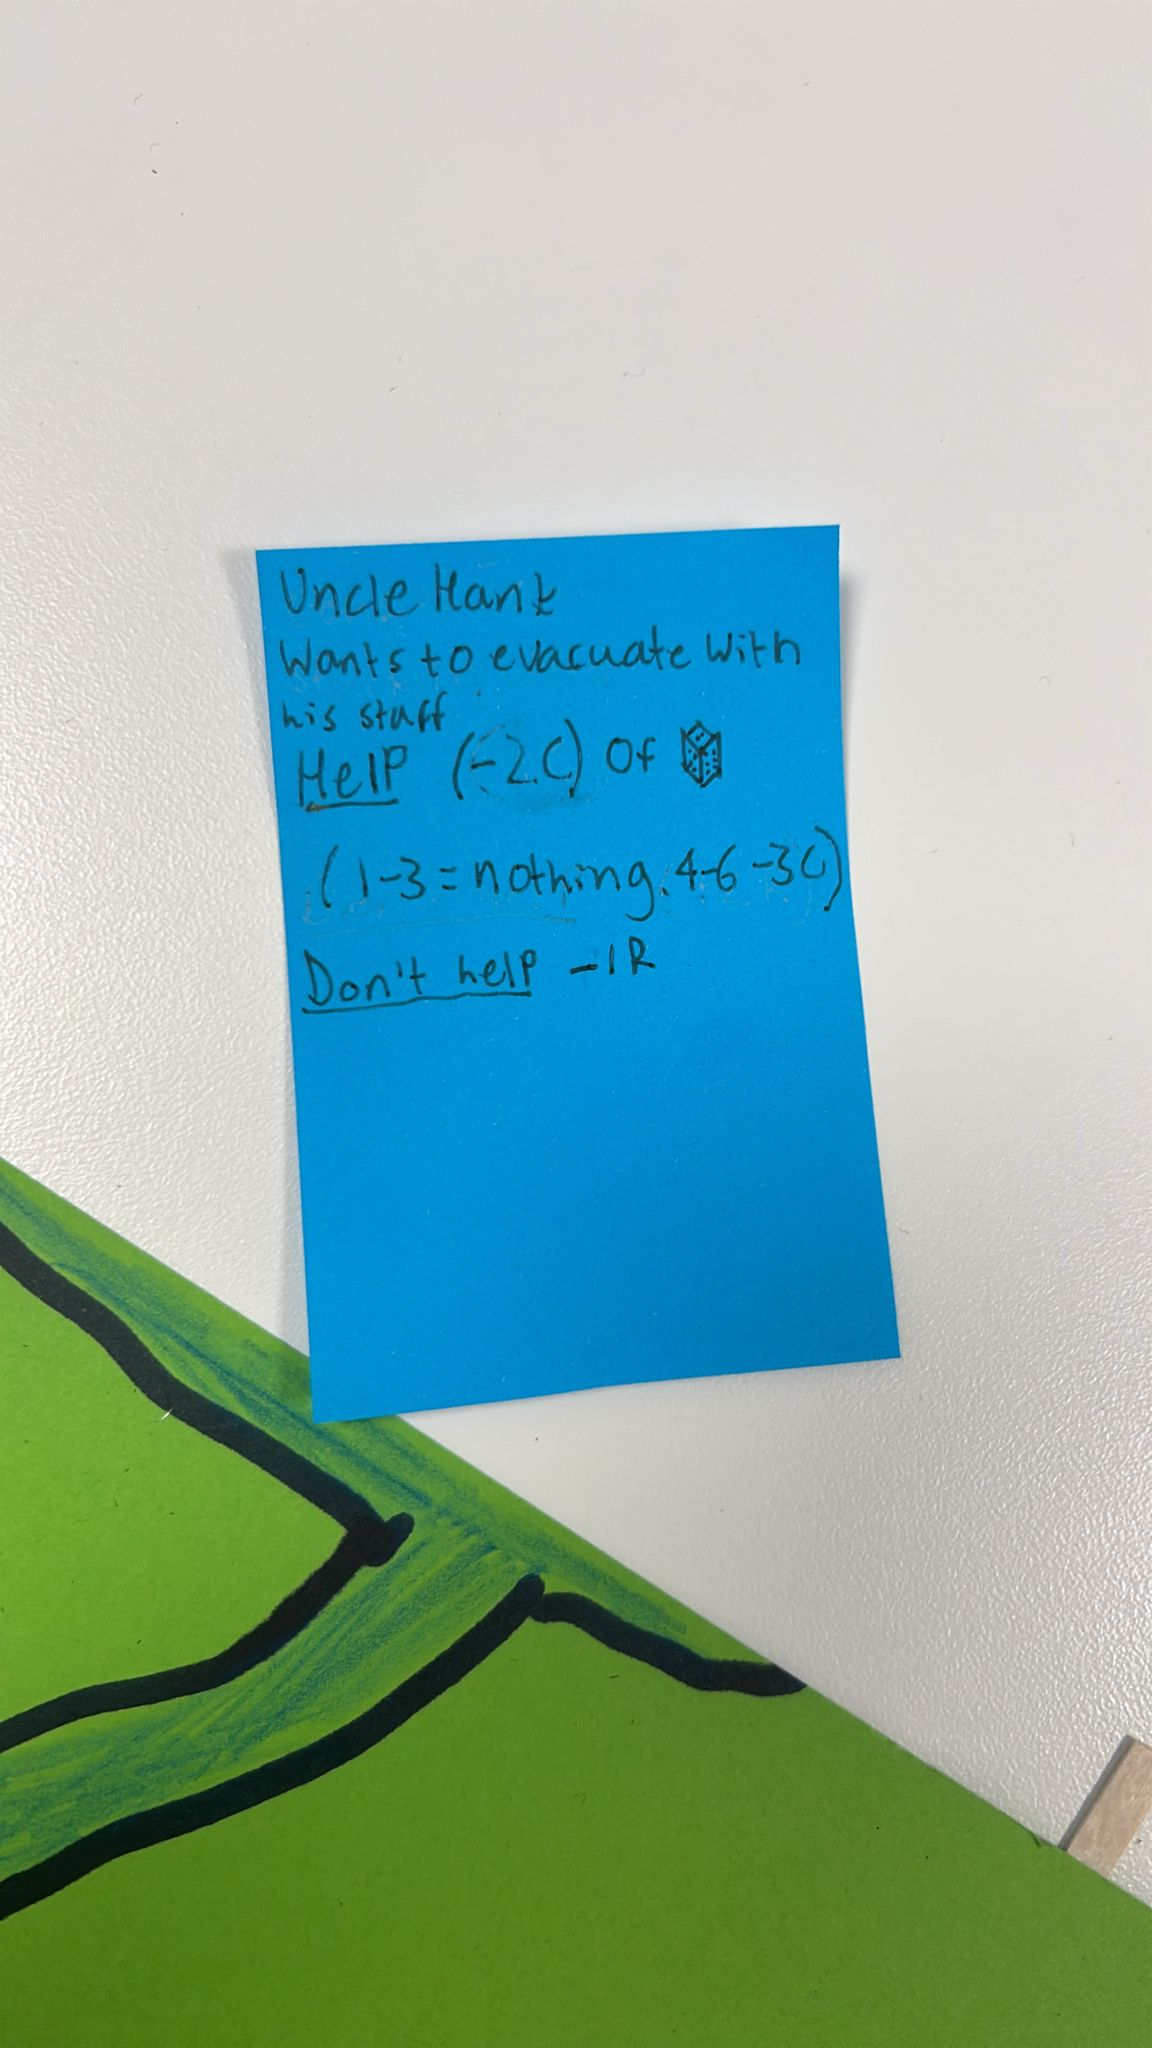 Uncle Hank
Wants to evacuate with
his staff
Help (-2C) Of
(1-3 = nothing. 4-6 -3C)
Don't help -1R